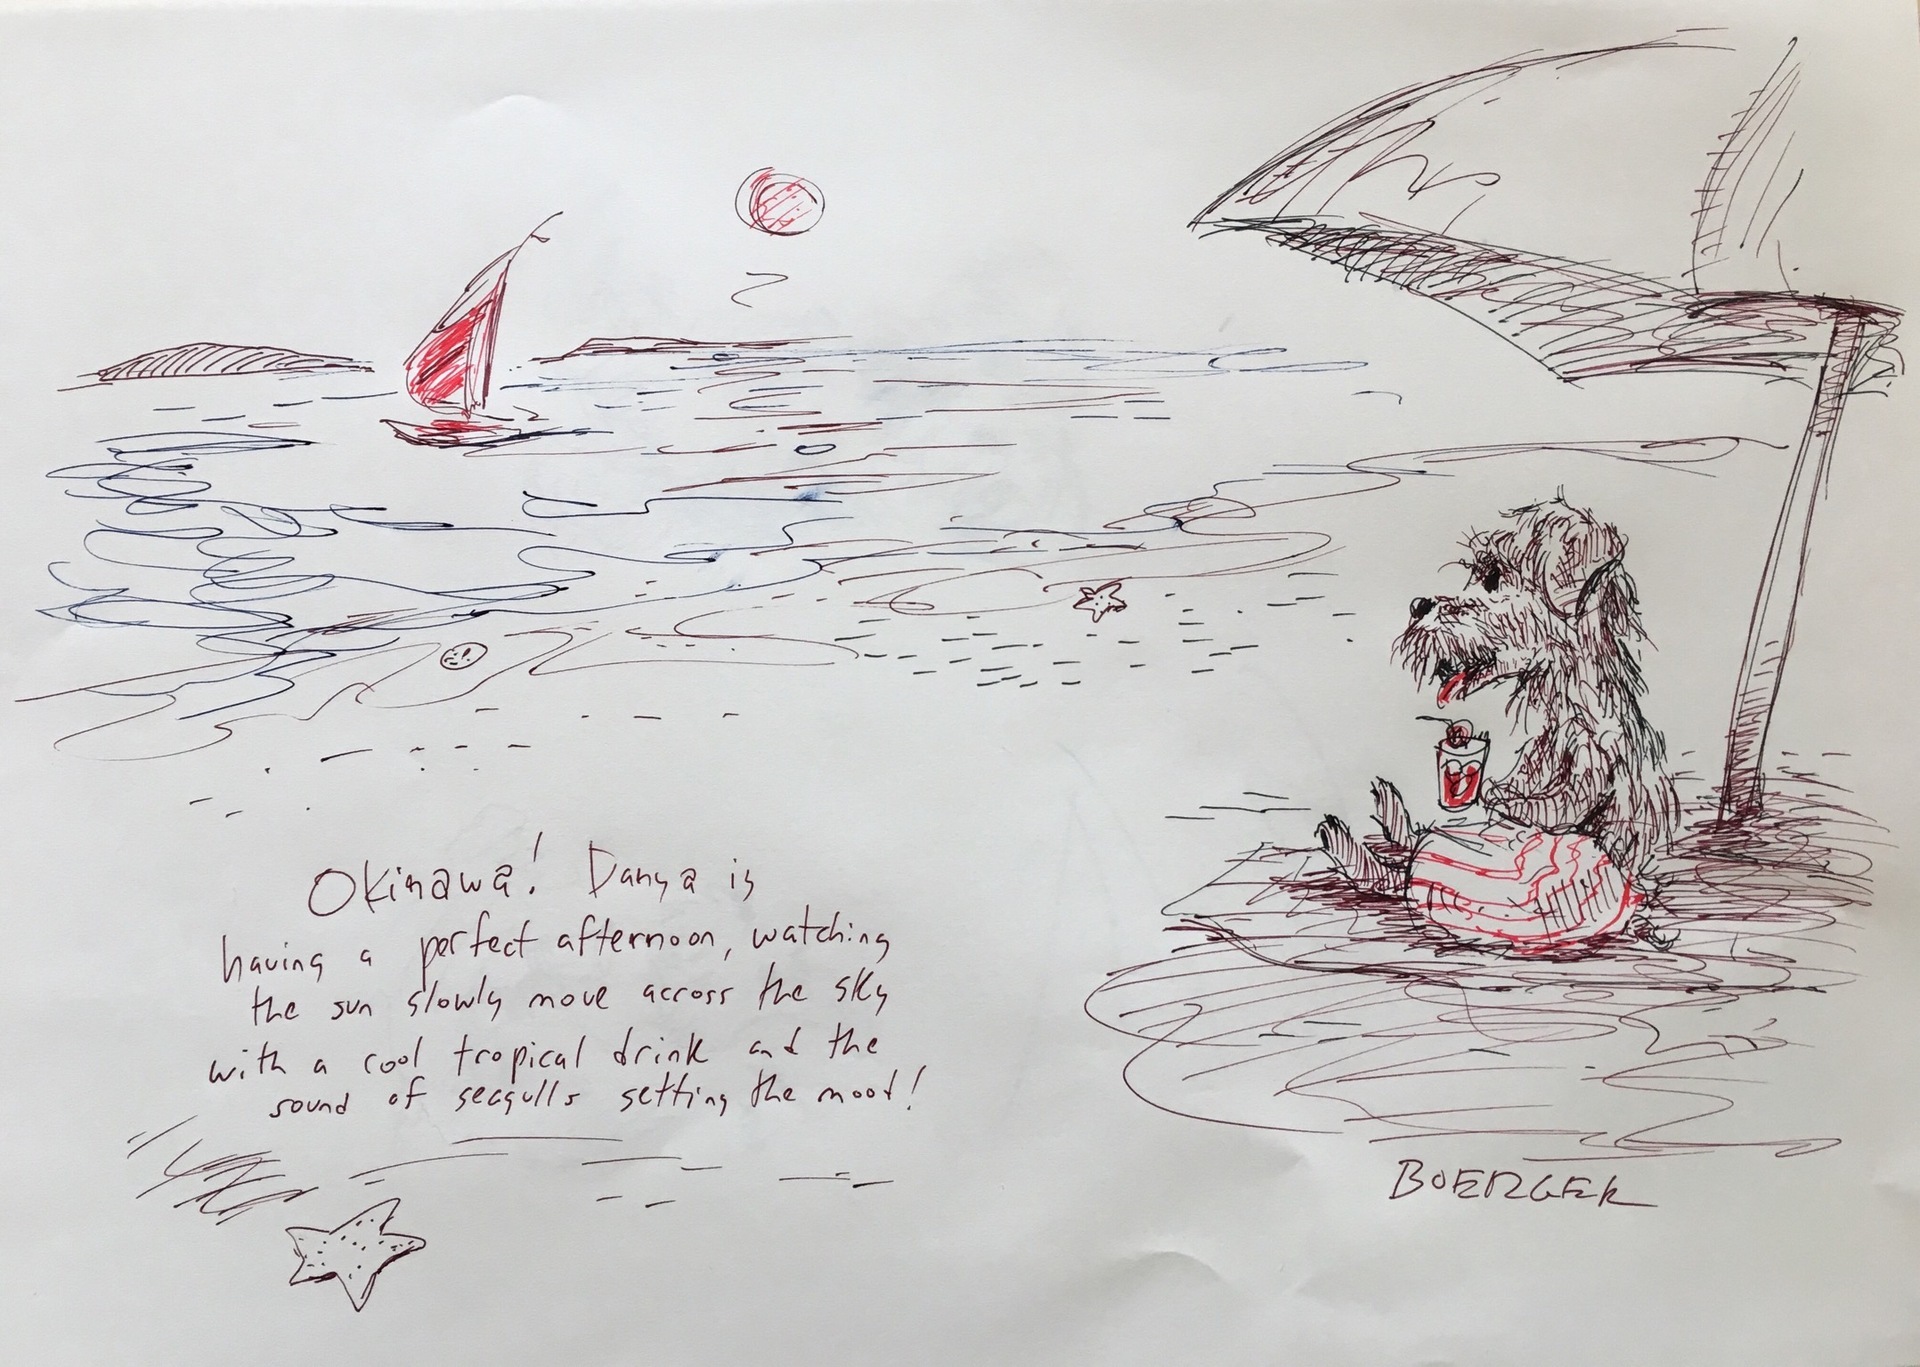 Okinawa! Danya is
having a perfect afternoon, watching
the sun slowly move across the sky
with a cool tropical drink and the
sound of seagulls setting the mood!
BOERGER